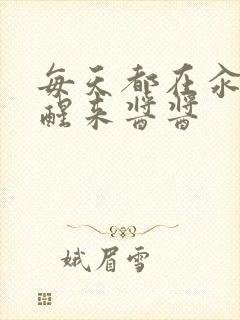 每天都在汆
醒来酱酱
娥眉雪